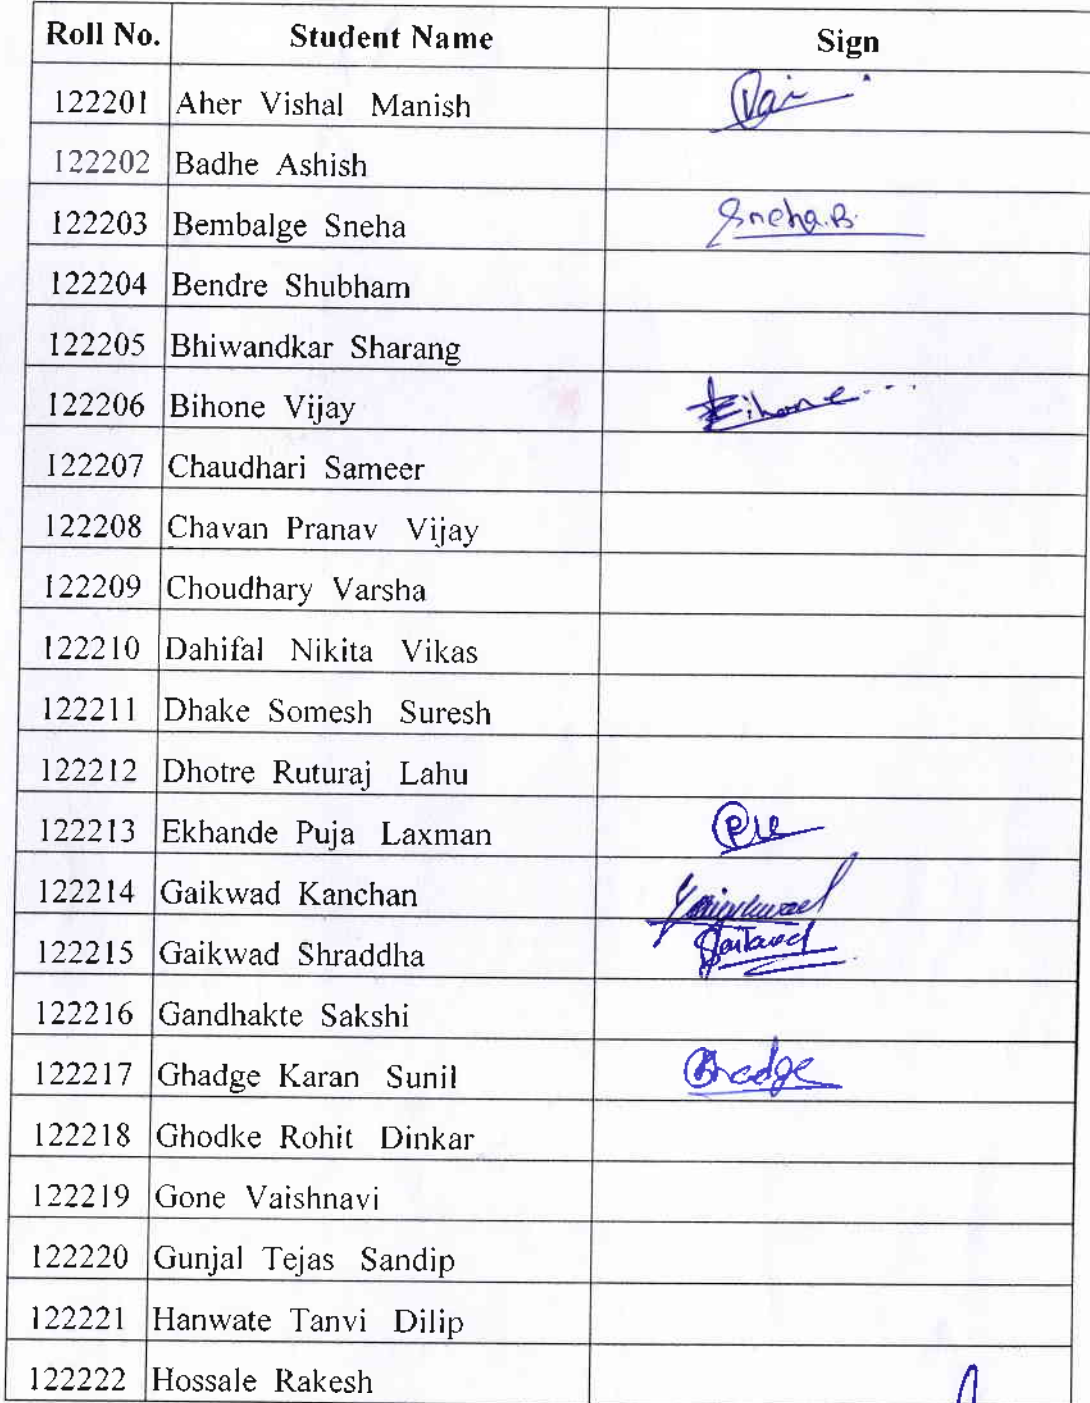 Roll No. Student Name Sign
122201 Aher Vishal Manish
122202 Badhe Ashish
122203 Bembalge Sneha Sneha.B.
122204 Bendre Shubham
122205 Bhiwandkar Sharang
122206 Bihone Vijay Bihone...
122207 Chaudhari Sameer
122208 Chavan Pranav Vijay
122209 Choudhary Varsha
122210 Dahifal Nikita Vikas
122211 Dhake Somesh Suresh
122212 Dhotre Ruturaj Lahu
122213 Ekhande Puja Laxman
122214 Gaikwad Kanchan
122215 Gaikwad Shraddha
122216 Gandhakte Sakshi
122217 Ghadge Karan Sunil
122218 Ghodke Rohit Dinkar
122219 Gone Vaishnavi
122220 Gunjal Tejas Sandip
122221 Hanwate Tanvi Dilip
122222 Hossale Rakesh